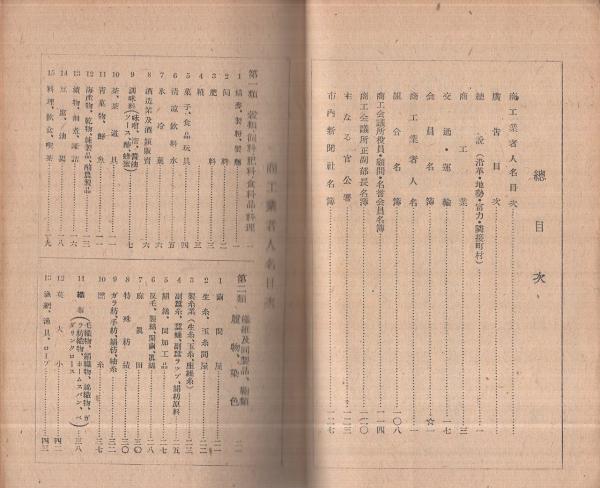 總目次
商工業者人名目次
廣告目次
總說（沿革・地勢・富力・隣接町村）……一
商工業……三
交通・運輸……一七
會員名簿……☆一
商工業者人名……一
組合名簿……一〇八
商工會議所役員・顧問・名譽會員名簿……一一四
商工會議所正副部長名簿……一二〇
主なる官公署……一二三
市內新聞社名簿……一二七
商工業者人名目次
第一類 穀類飼料肥料食料品料理……一
1
2
3 肥料……三
4
5 菓子、食品玩具……四
6 淸凉飲料水……五
7 氷冷菓……六
8 酒造業及酒類販賣……六
9 調味料（味噌、醬油、ソース、酢、蜂蜜）……七
10 茶、茶道具……一〇
11 靑菓物、鮮魚……一一
12 海產物、乾物、練製品、酪農製品……一三
13 漬物、佃煮、罐詰……一六
14 豆腐、油揚……一八
15 料理、飮食、喫茶……一九
第二類
1 繭問屋……二一
2 生糸、玉糸問屋……二二
3 製糸業（生糸、玉糸、座繰糸）……二三
4 副蠶糸、蠶蛹、副蠶ラップ、絹紡原料……二五
5
6 眞綿……二八
7 麻眞田……三〇
8 特殊紡績……三〇
9 ガラ紡、手紡、絹紡、紬糸……三二
10 撚糸……三七
11 織布（毛織物、絹織物、綿織物、ガラ紡織物、ホームスパン、ベダリンクロース）……三八
12 莫大小……四二
13 漁網、漁具、ロープ……四三